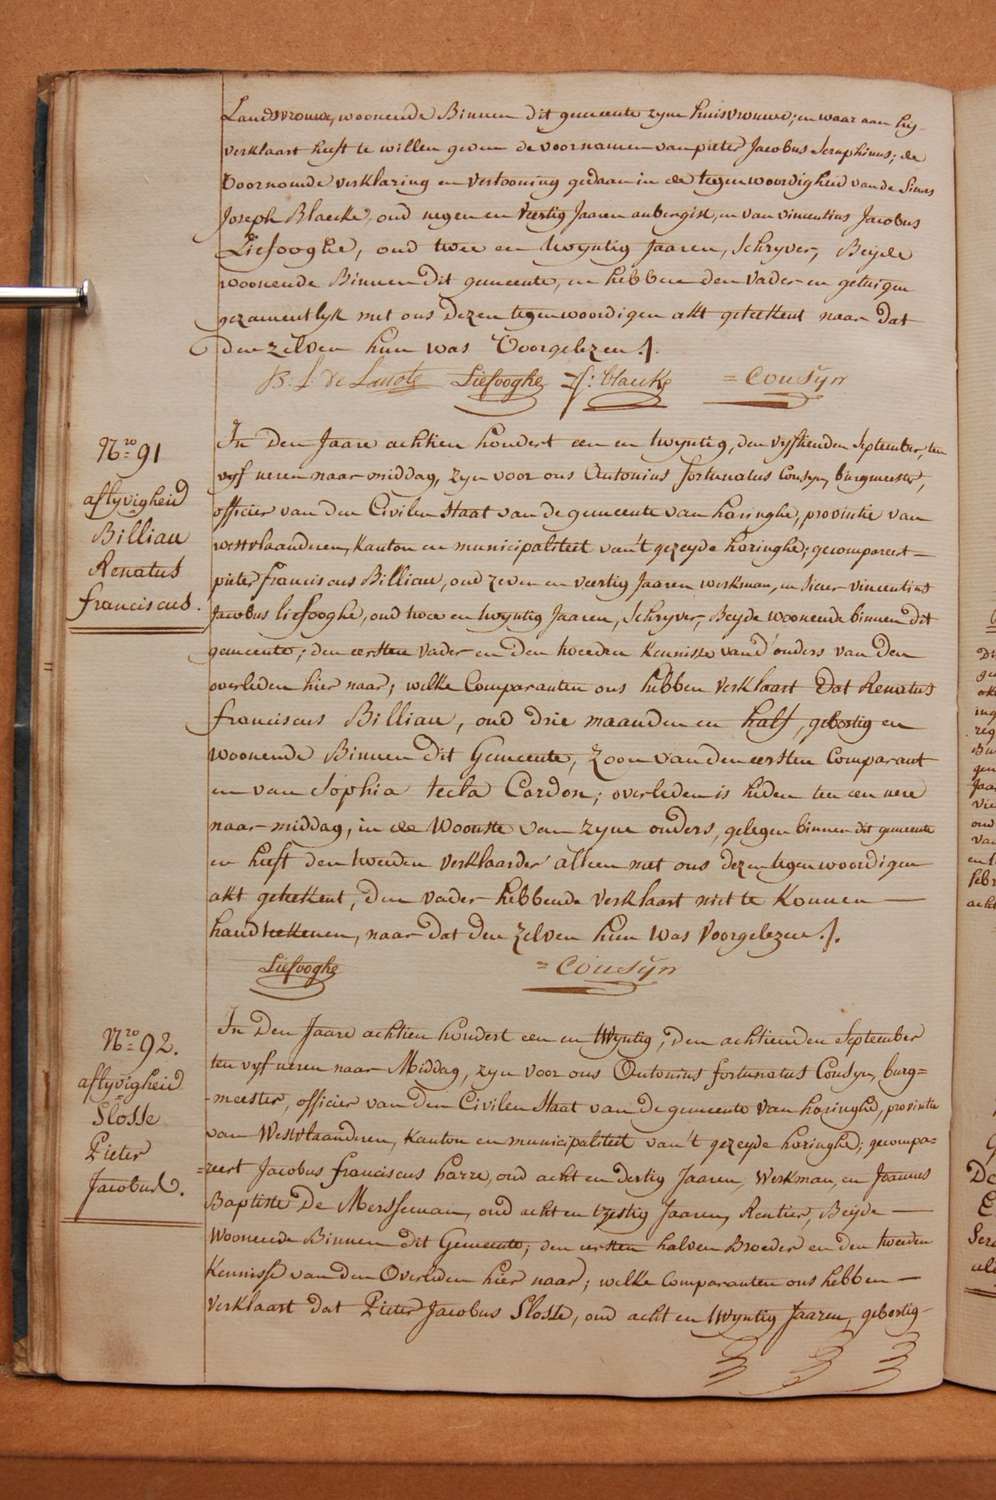 Landsvrouwe, woonende Binnen dit gemeente zyne huisvrouwe; en waar aan hy-
verklaart heeft te willen geven de voornamen van pieter Jacobus Seraphinus; de
Voornoemde verklaring en vertooning gedaan in de tegenwoordigheid van de Sieurs
Joseph Blaecke, oud negen en veertig Jaaren aubergist, en van vincentius Jacobus
Liefooghe, oud twee en twyntig Jaaren, Schryver, Beyde
woonende Binnen dit gemeente, en hebben den vader en getuigen
gezamentlyk met ons dezen tegenwoordigen akt geteekent naar dat
den zelven hun was Voorgelezen ./.
Liefooghe J: blaecke = Cousyn
Nro 91
aflyvigheid
Billiau
Renatus
franciscus.
In den Jaare achtien hondert een en twyntig, den vyftienden September, ten
vyf uren naar middag, zyn voor ons Antonius fortunatus Cousyn, burgmeester,
officier van den Civilen Staat van de gemeente van haringhe, provintie van
westvlaanderen, kanton en municipaliteit van't gezeyde haringhe; gecompareert-
pieter franciscus Billiau, oud zeven en veertig Jaaren werkman, en sieur vincentius
Jacobus liefooghe, oud twee en twyntig Jaaren, Schryver, Beyde woonende binnen dit
gemeente; den eersten vader en den tweeden kennisse van d'ouders van den
overleden hier naar; welke Comparanten ons hebben verklaart Dat Renatus
franciscus Billiau, oud drie maanden en half, gebortig en
woonende Binnen dit Gemeente, Zoon van den eersten Comparant
en van Sophia tecla Cardon; overleden is heden ten een uere
naar middag, in de Woonste van zyne ouders, gelegen binnen dit gemeente
en heeft den tweeden verklaarder alleen met ons dezen tegenwoordigen
akt geteekent, den vader hebbende verklaart niet te konnen
handteekenen, naar dat den zelven hun was voorgelezen ./.
Liefooghe = Cousyn
Nro 92.
aflyvigheid
Slosse
Pieter
Jacobus.
In Den Jaare achtien hondert een en twyntig, den achtienden September
ten vyf ueren naar Middag, zyn voor ons Antonius fortunatus Cousyn, burg=
-meester, officier van den Civilen Staat van de gemeente van haringhe, provintie
van Westvlaanderen, kanton en municipaliteit van 't gezeyde haringhe; gecompa=
=reert Jacobus franciscus harre, oud acht en dertig Jaaren, Werkman, en Joannes
Baptiste De Mersseman, oud acht en tzestig Jaaren, Rentier, Beyde
Woonende Binnen dit Gemeente; den eersten halven Broeder en den tweeden
kennisse van den Overleden hier naar; welke Comparanten ons hebben
Verklaart dat Pieter Jacobus Slosse, oud acht en twyntig Jaaren, gebortig-